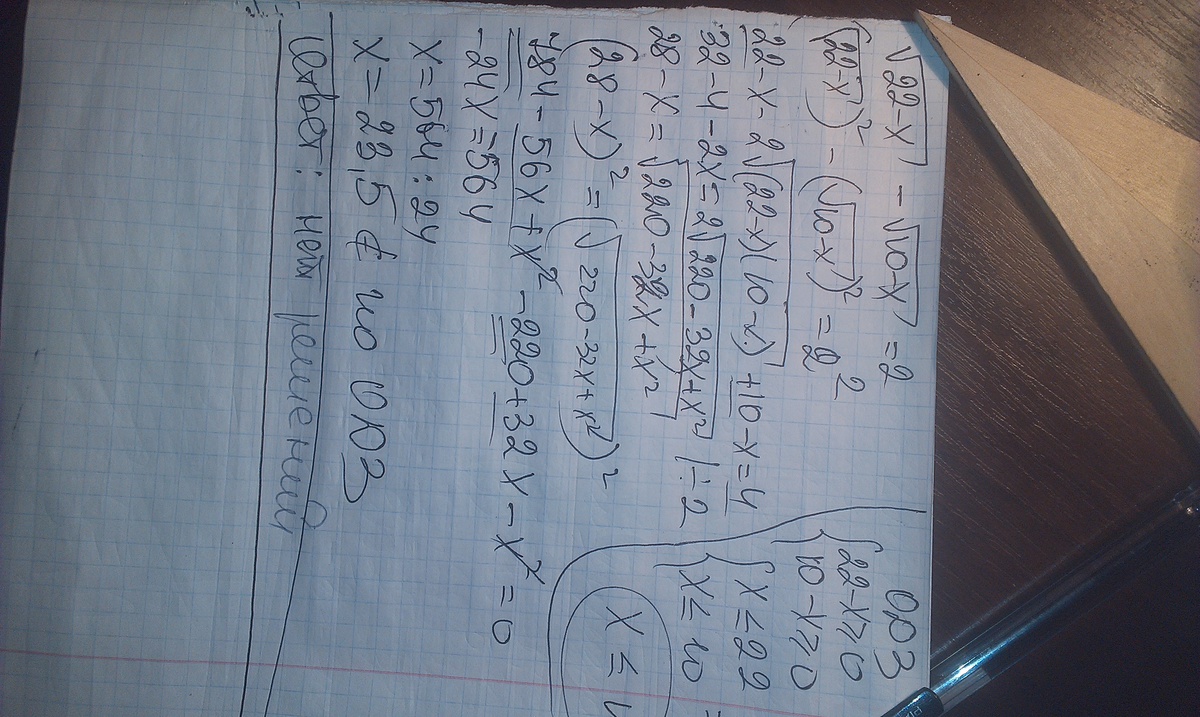 √22-x - √10-x = 2
(√22-x)² - (√10-x)² = 2²
22-x-2√(22-x)(10-x) + 10-x = 4
32-4-2x = 2√220-32x+x² | ÷2
28-x = √220-32x+x²
(28-x)² = (√220-32x+x²)²
784-56x+x²-220+32x-x² = 0
-24x = 564
x = 564 : 24
x = 23,5 ∉ по ОДЗ
Ответ: нет решений
ОДЗ
{22-x≥0
10-x≥0
{x≤22
x≤10
x≤